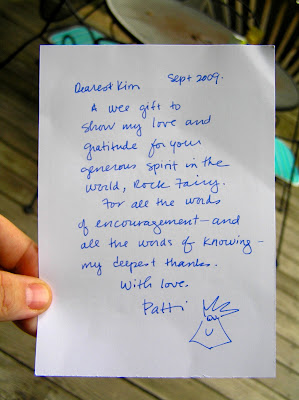 Dearest Kim Sept 2009.
A wee gift to
show my love and
gratitude for your
generous spirit in the
world, Rock Fairy.
For all the words
of encouragement—and
all the words of knowing—
my deepest thanks.
With love.
Patti